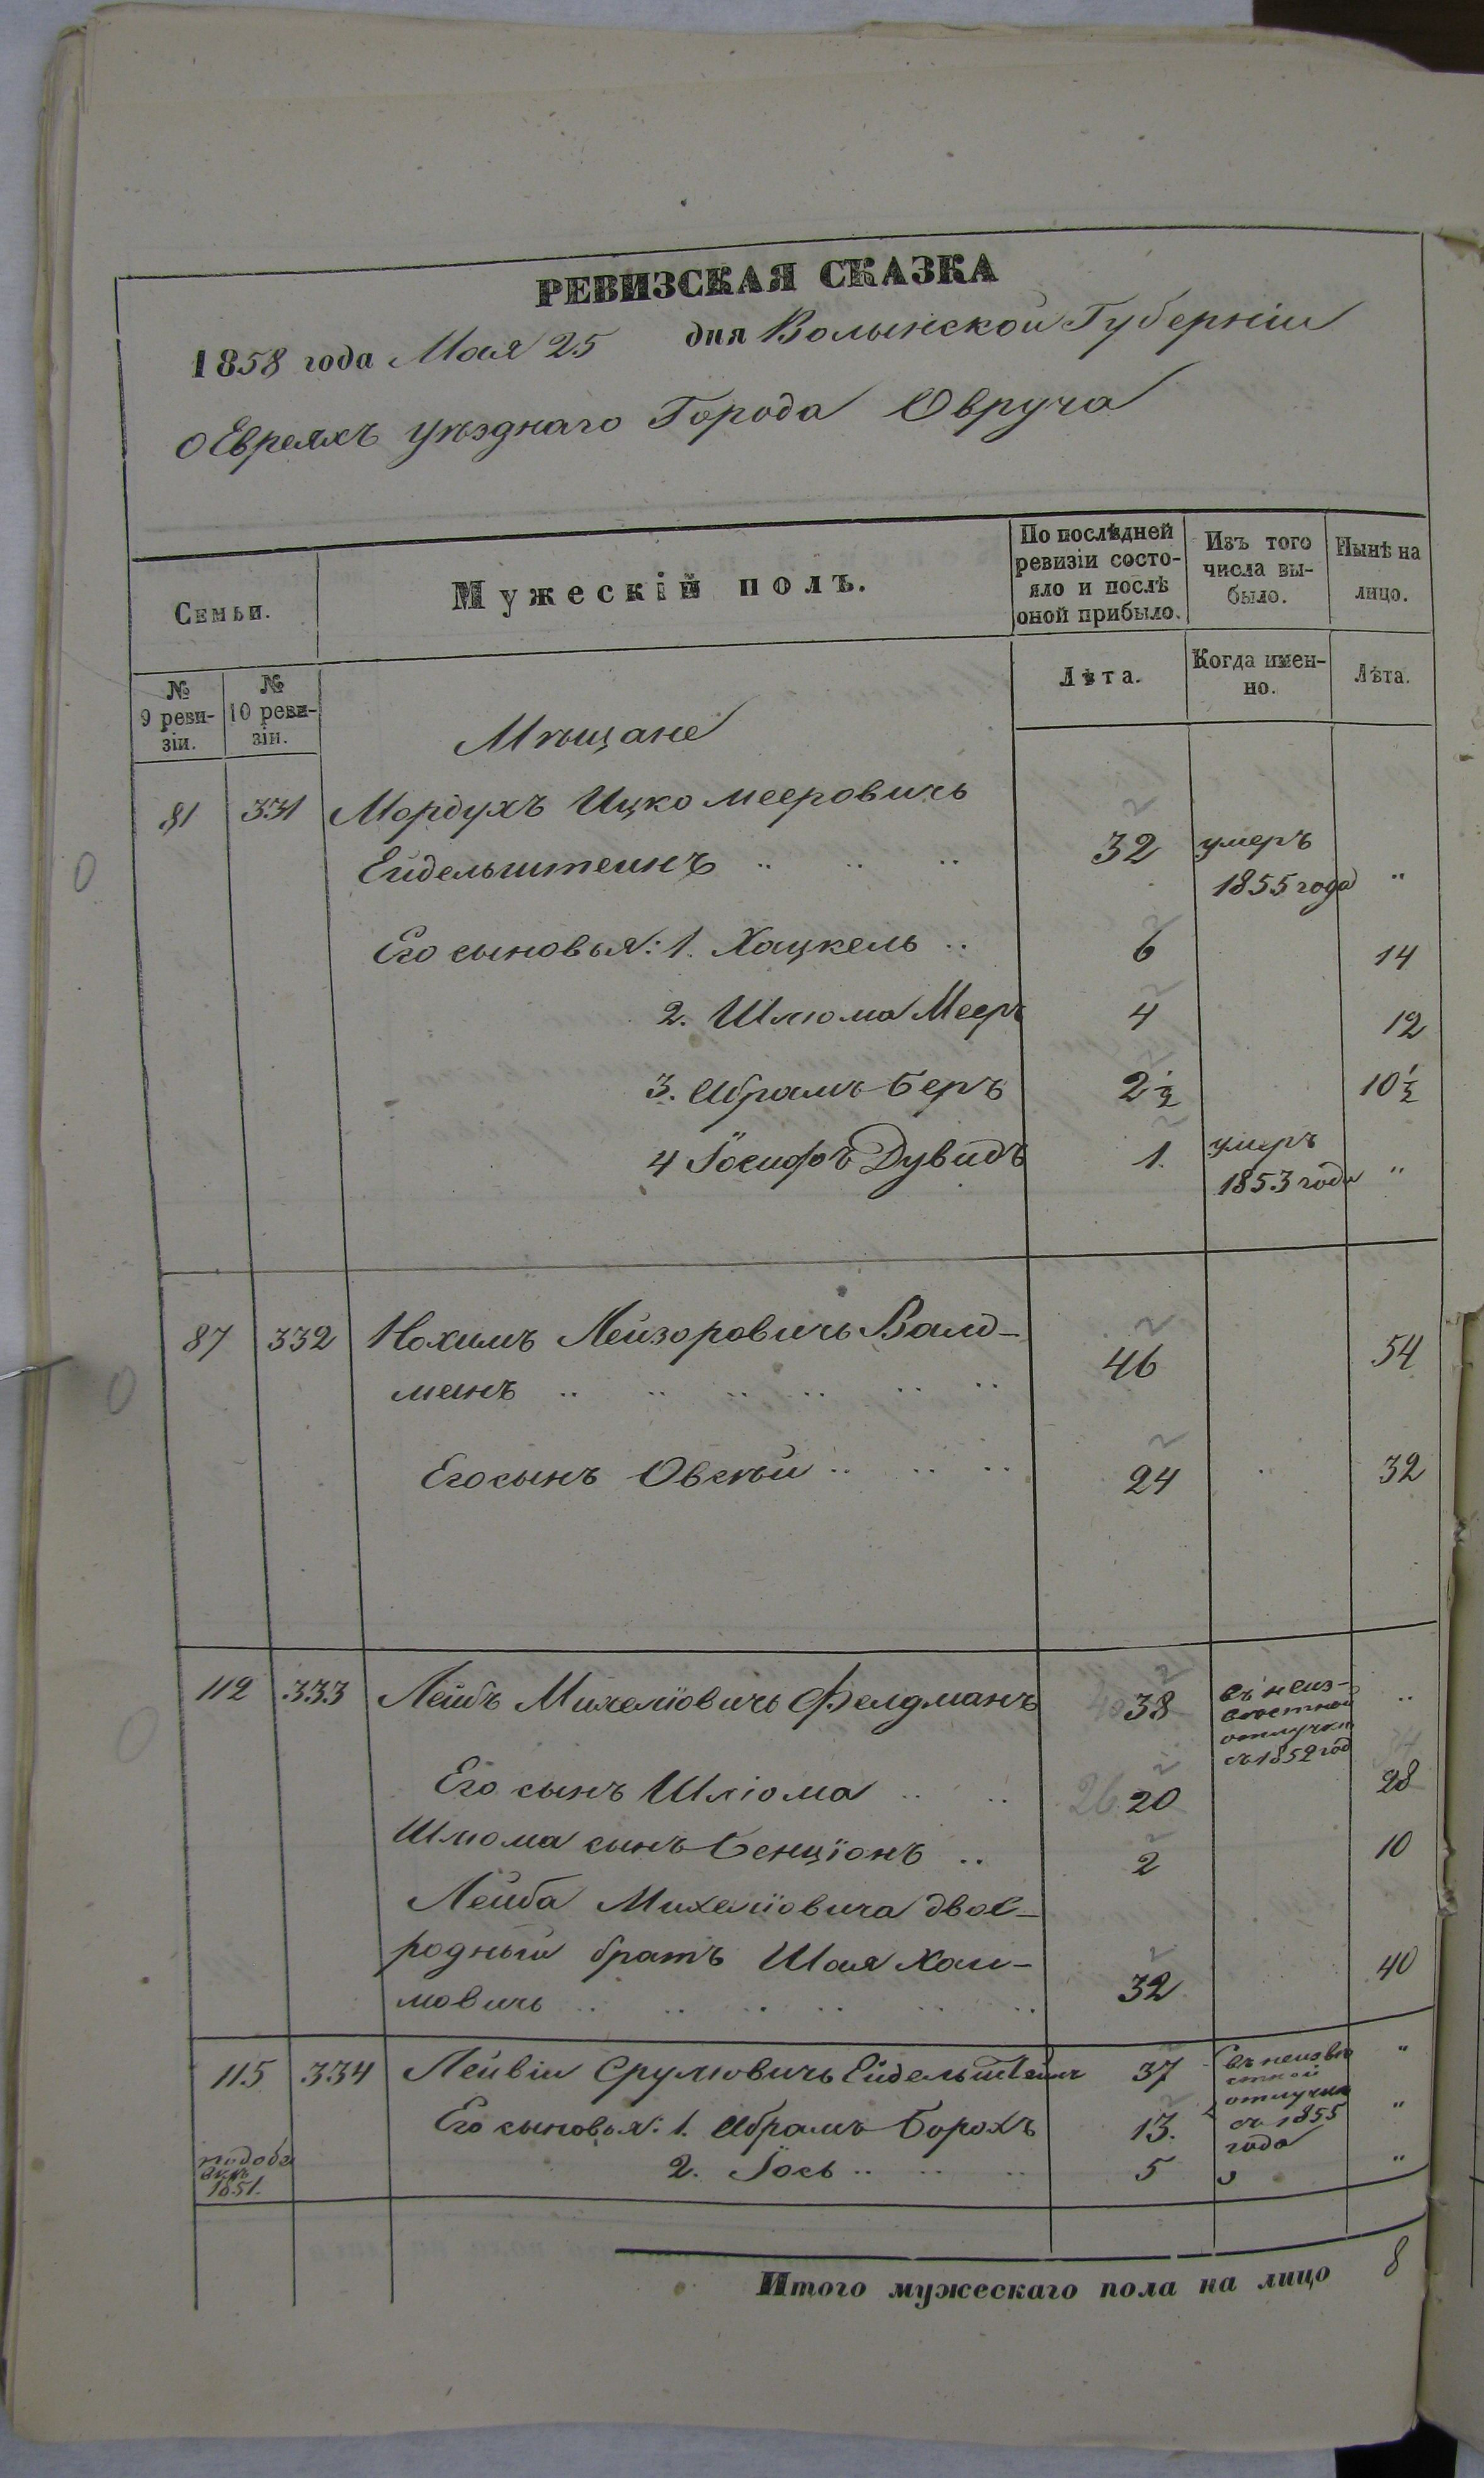 РЕВИЗСКАЯ СКАЗКА
1858 года Мая 25 дня Волынской Губерніи
О Евреяхъ уѣзднаго Города Овруча
Семьи. Мужескій полъ. По послѣдней ревизіи состояло и послѣ оной прибыло. Изъ того числа выбыло. Нынѣ на лицо.
№ 9 ревизіи. № 10 ревизіи. Лѣта. Когда именно. Лѣта.
Мѣщане
81 331 Мордухъ Ицко Мееровичь
Ейдельштейнъ .. .. .. 32 умеръ 1855 года "
Его сыновья: 1. Хацкель .. 6 14
2. Шлюома Мееръ 4 12
3. Абрамъ Беръ 2½ 10½
4 Іосифъ Дувидъ 1. умеръ 1853 года "
87 332 Нохимъ Лейзоровичь Валд-
манъ .. .. .. .. .. .. 46 54
Его сынъ Овсѣй .. .. .. 24 32
112 333 Лейбъ Михелiовичь Фелдманъ 38 въ неизвѣстной отлучкѣ съ 1852 год ..
Его сынъ Шлiома .. .. 26 20 28
Шлюома сынъ Бенціонъ .. 2 10
Лейба Михелiовича двою-
родный братъ Шая Хаи-
мовичь .. .. .. .. .. .. 32 40
115 334 Лейвіи Срулiовичь Ейдельштейнъ 37 въ неизвѣстной отлучкѣ съ 1855 года "
Его сыновья: 1. Абрамъ Борохъ 13. "
2. Іось .. .. .. 5 "
1851.
Итого мужескаго пола на лицо 8